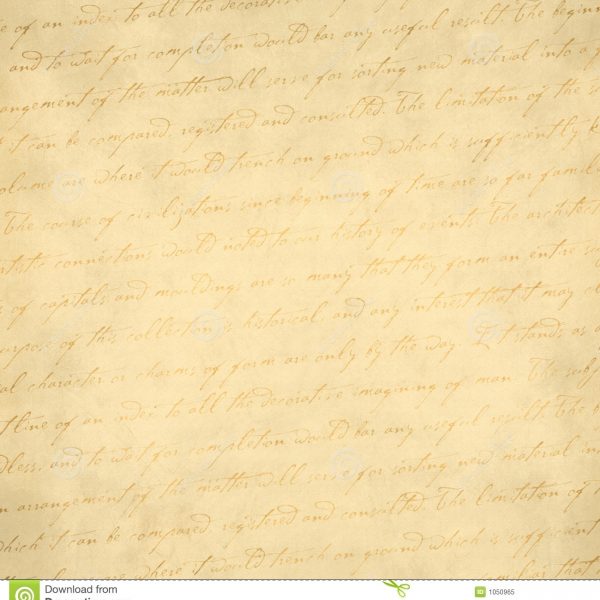 e of an index to all the decorative
and to wait for completion would bar any useful result. The beginn
angement of the matter will serve for sorting new material into a
it can be compared, registered and consulted. The limitation of the
volume are where it would trench on ground which is sufficiently k
The course of civilizations since beginning of time are so far famil
artistic connections would noted to our history of events. The architect
s of capitals and mouldings are so many that they form an entire
urpose of this collection is historical, and any interest that it may
al character or charms of form are only by the way. It stands as
tline of an index to all the decorative imagining of man. The subj
dless, and to wait for completion would bar any useful result. The b
n arrangement of the matter will serve for sorting new material in
which it can be compared, registered and consulted. The limitation of
are where it would trench on ground which is sufficient
that
Download from
1050965